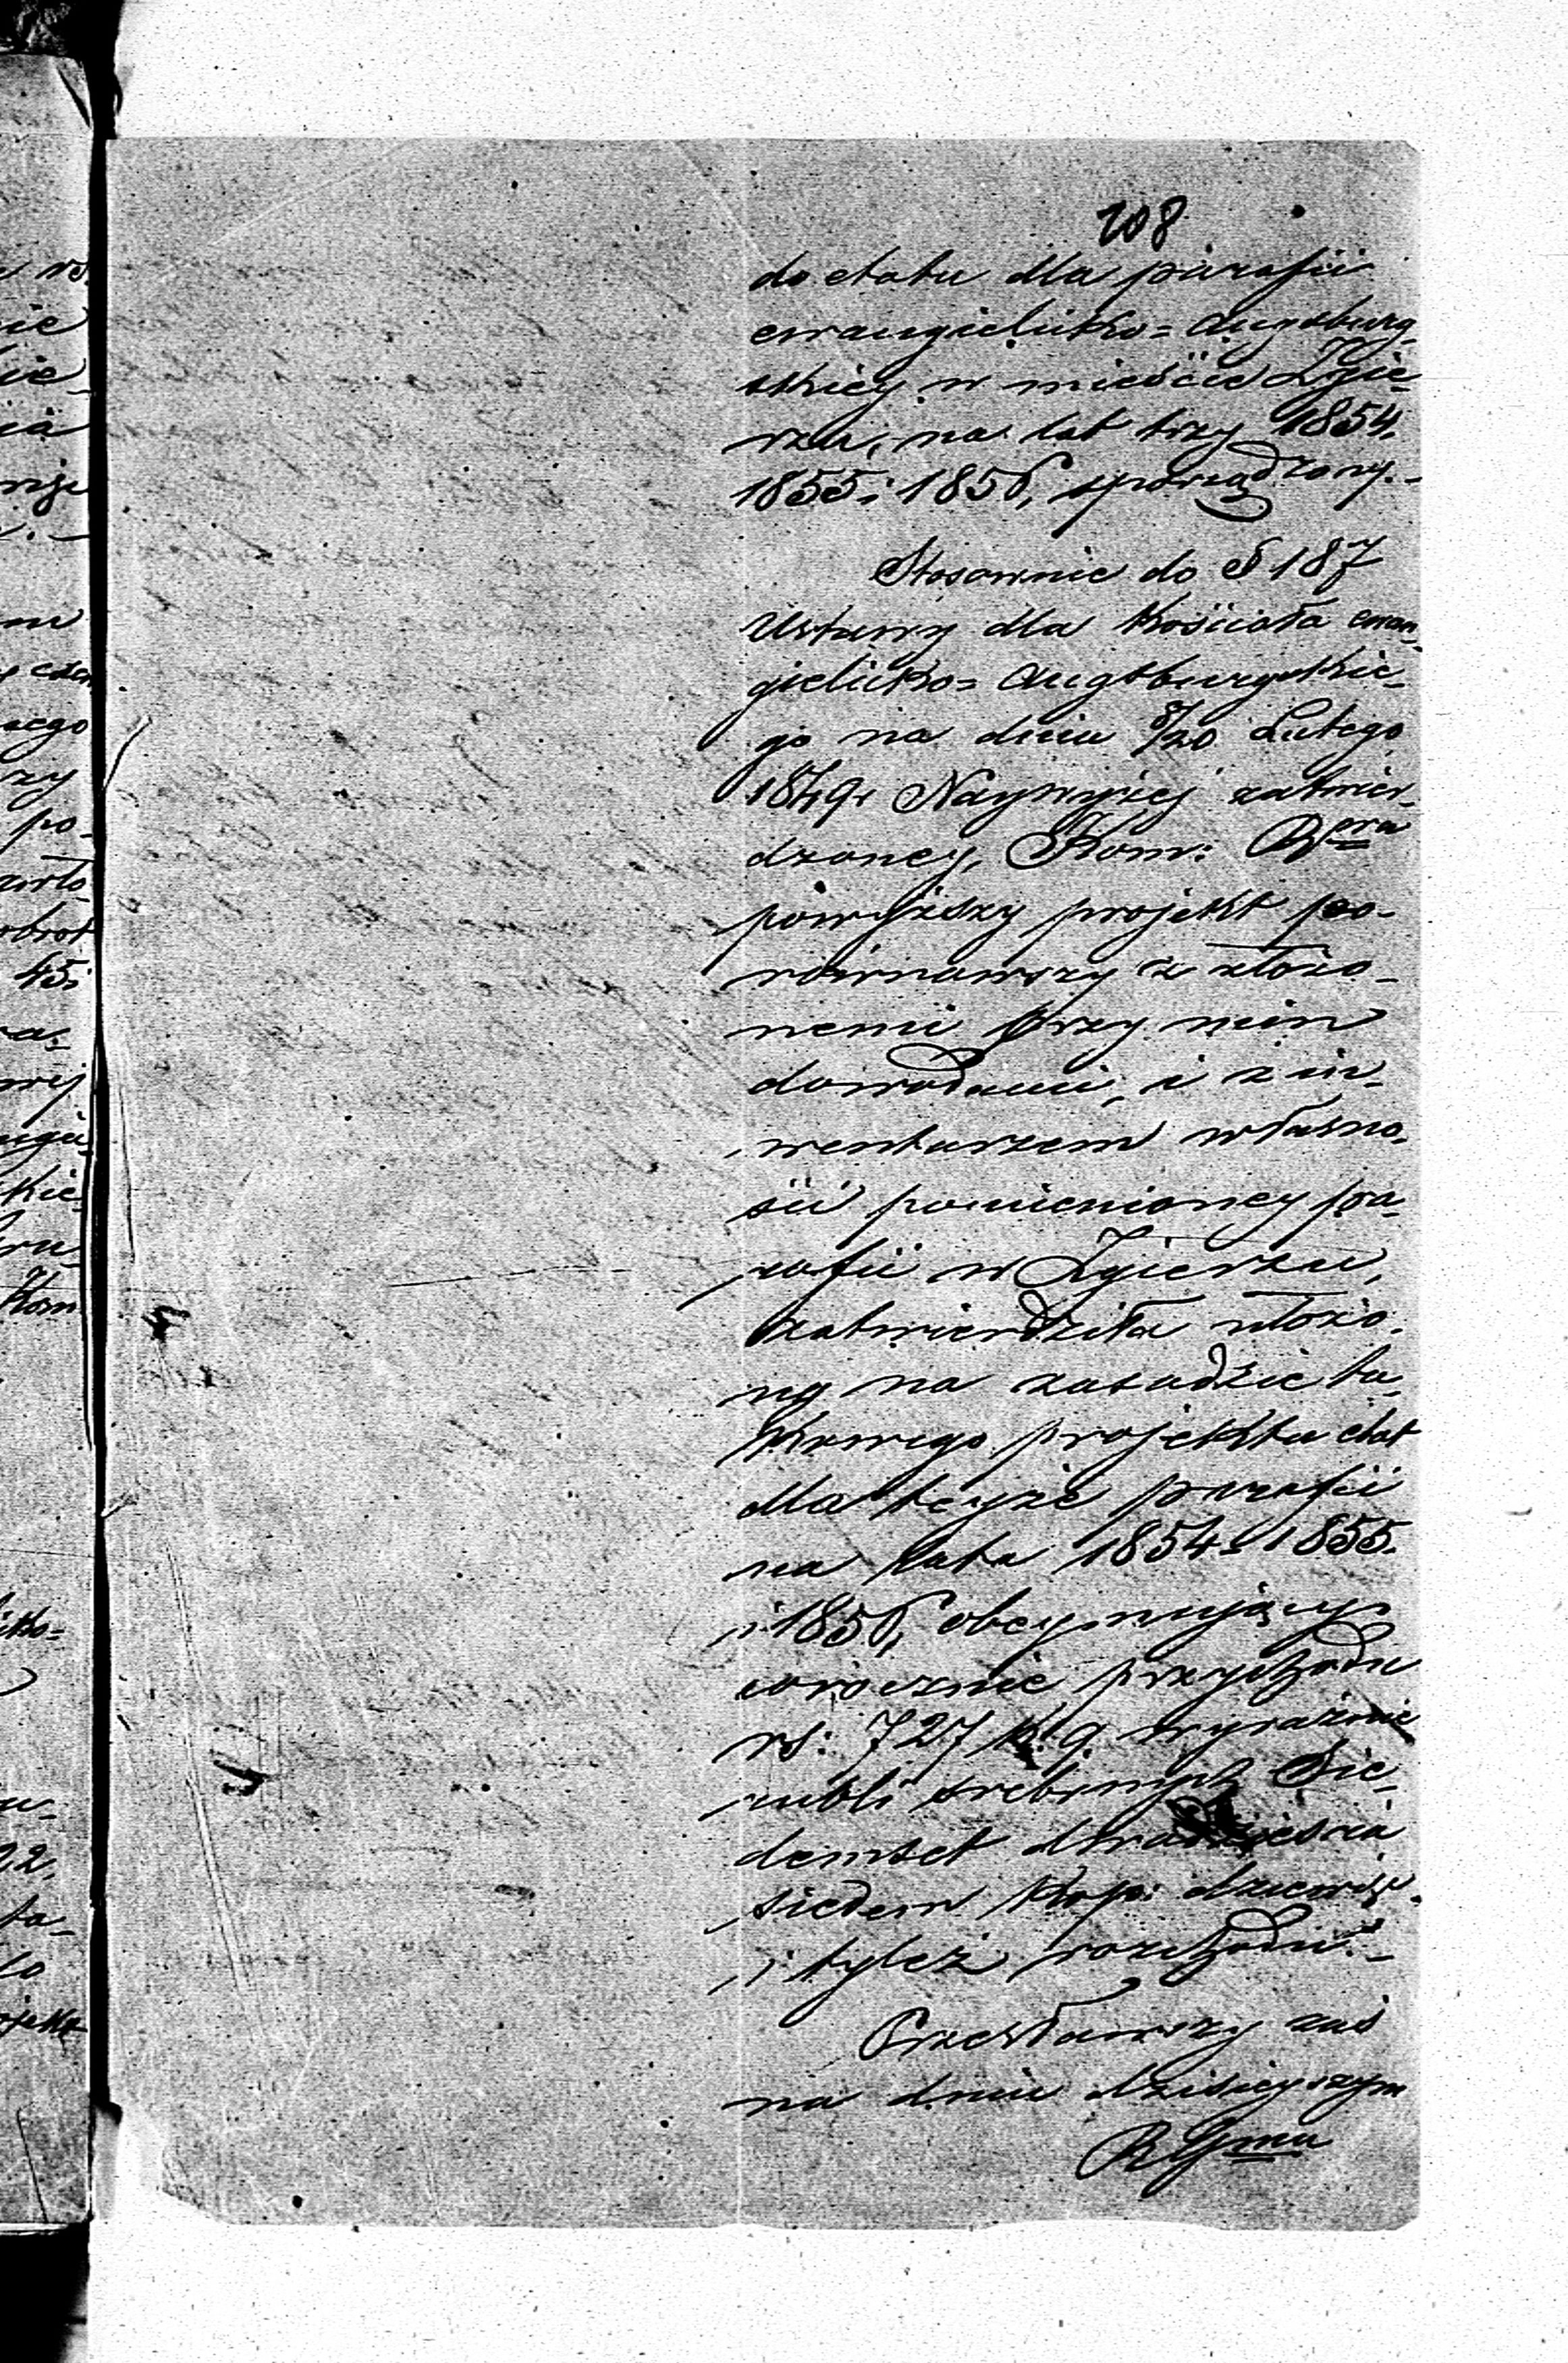 208
do etatu dla parafii
ewangielicko= Augsburg-
skiey w mieście Zgie-
rzu, na lat trzy 1854.
1855 i 1856, sporządzony.-
Stosownie do § 187
Ustawy dla Kościoła ewan-
gielicko= Augsburgskie-
go na dniu 8/20 Lutego
1849r Naywyżej zatwier-
dzoney, Kom: Rząd
powyższy projekt po-
równawszy z złożo-
nemi przy nim
dowodami, i z in-
wentarzem własno-
ści pomienioney pa-
rafii w Zgierzu,
zatwierdziła ułożo-
ny na zasadzie ta-
kowego projektu etat
dla teyże parafii
na lata 1854. 1855.
i 1856, obeymujący
corocznie przychodu
rs: 727 k. 9. wyraźnie
rubli srebrnych Sie-
demset dwadzieścia
siedem kop: dziewięć.
i tyleż rozchodu.-
Przesławszy zaś
na dniu dzisieyszym
R Gmu
rs.
nie
wego
rzy
po-
obrot
45.
kie
Kom
22.
ta-
to